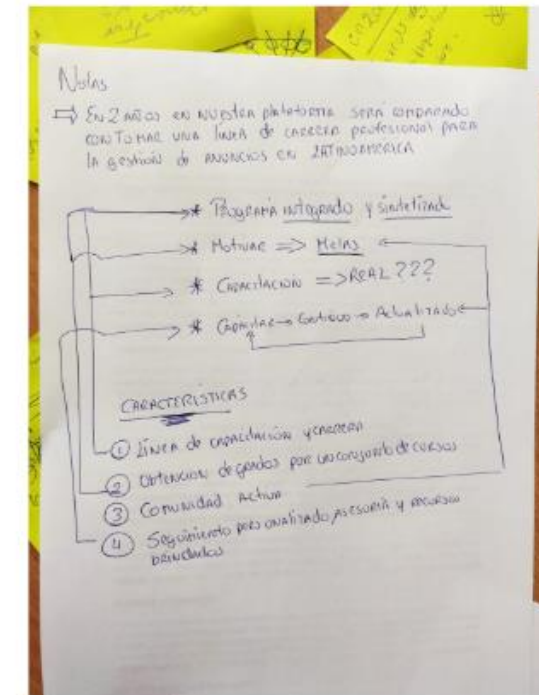 Notas
⇒ En 2 años en nuestra plataforma será comparado
con tomar una línea de carrera profesional para
la gestión de anuncios en Latinoamerica
* Programa integrado y sintetizad
* Motivar => Metas
* Capacitación => REAL ???
* Capacitar → Continuo → Actualizado
CARACTERÍSTICAS
① Línea de capacitación y carrera
② Obtencion de grados por un conjunto de cursos
③ Comunidad Activa
④ Seguimiento personalizado, asesoría y recursos
brindados